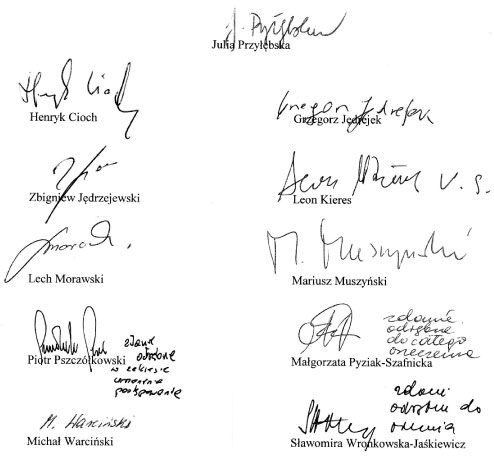 J. Przyłębska
Julia Przyłębska
Henryk Cioch
Henryk Cioch
Grzegorz Jędrejek
Grzegorz Jędrejek
Zbigniew Jędrzejewski
Leon Kieres
Lech Morawski
M. Muszyński
Mariusz Muszyński
zdanie
odrębne
do całego
orzeczenia
Piotr Pszczółkowski
zdanie
odrębne
w zakresie
umorzenia
postępowania
Małgorzata Pyziak-Szafnicka
M. Warciński
Michał Warciński
odrębne do
Sławomira Wronkowska-Jaśkiewicz